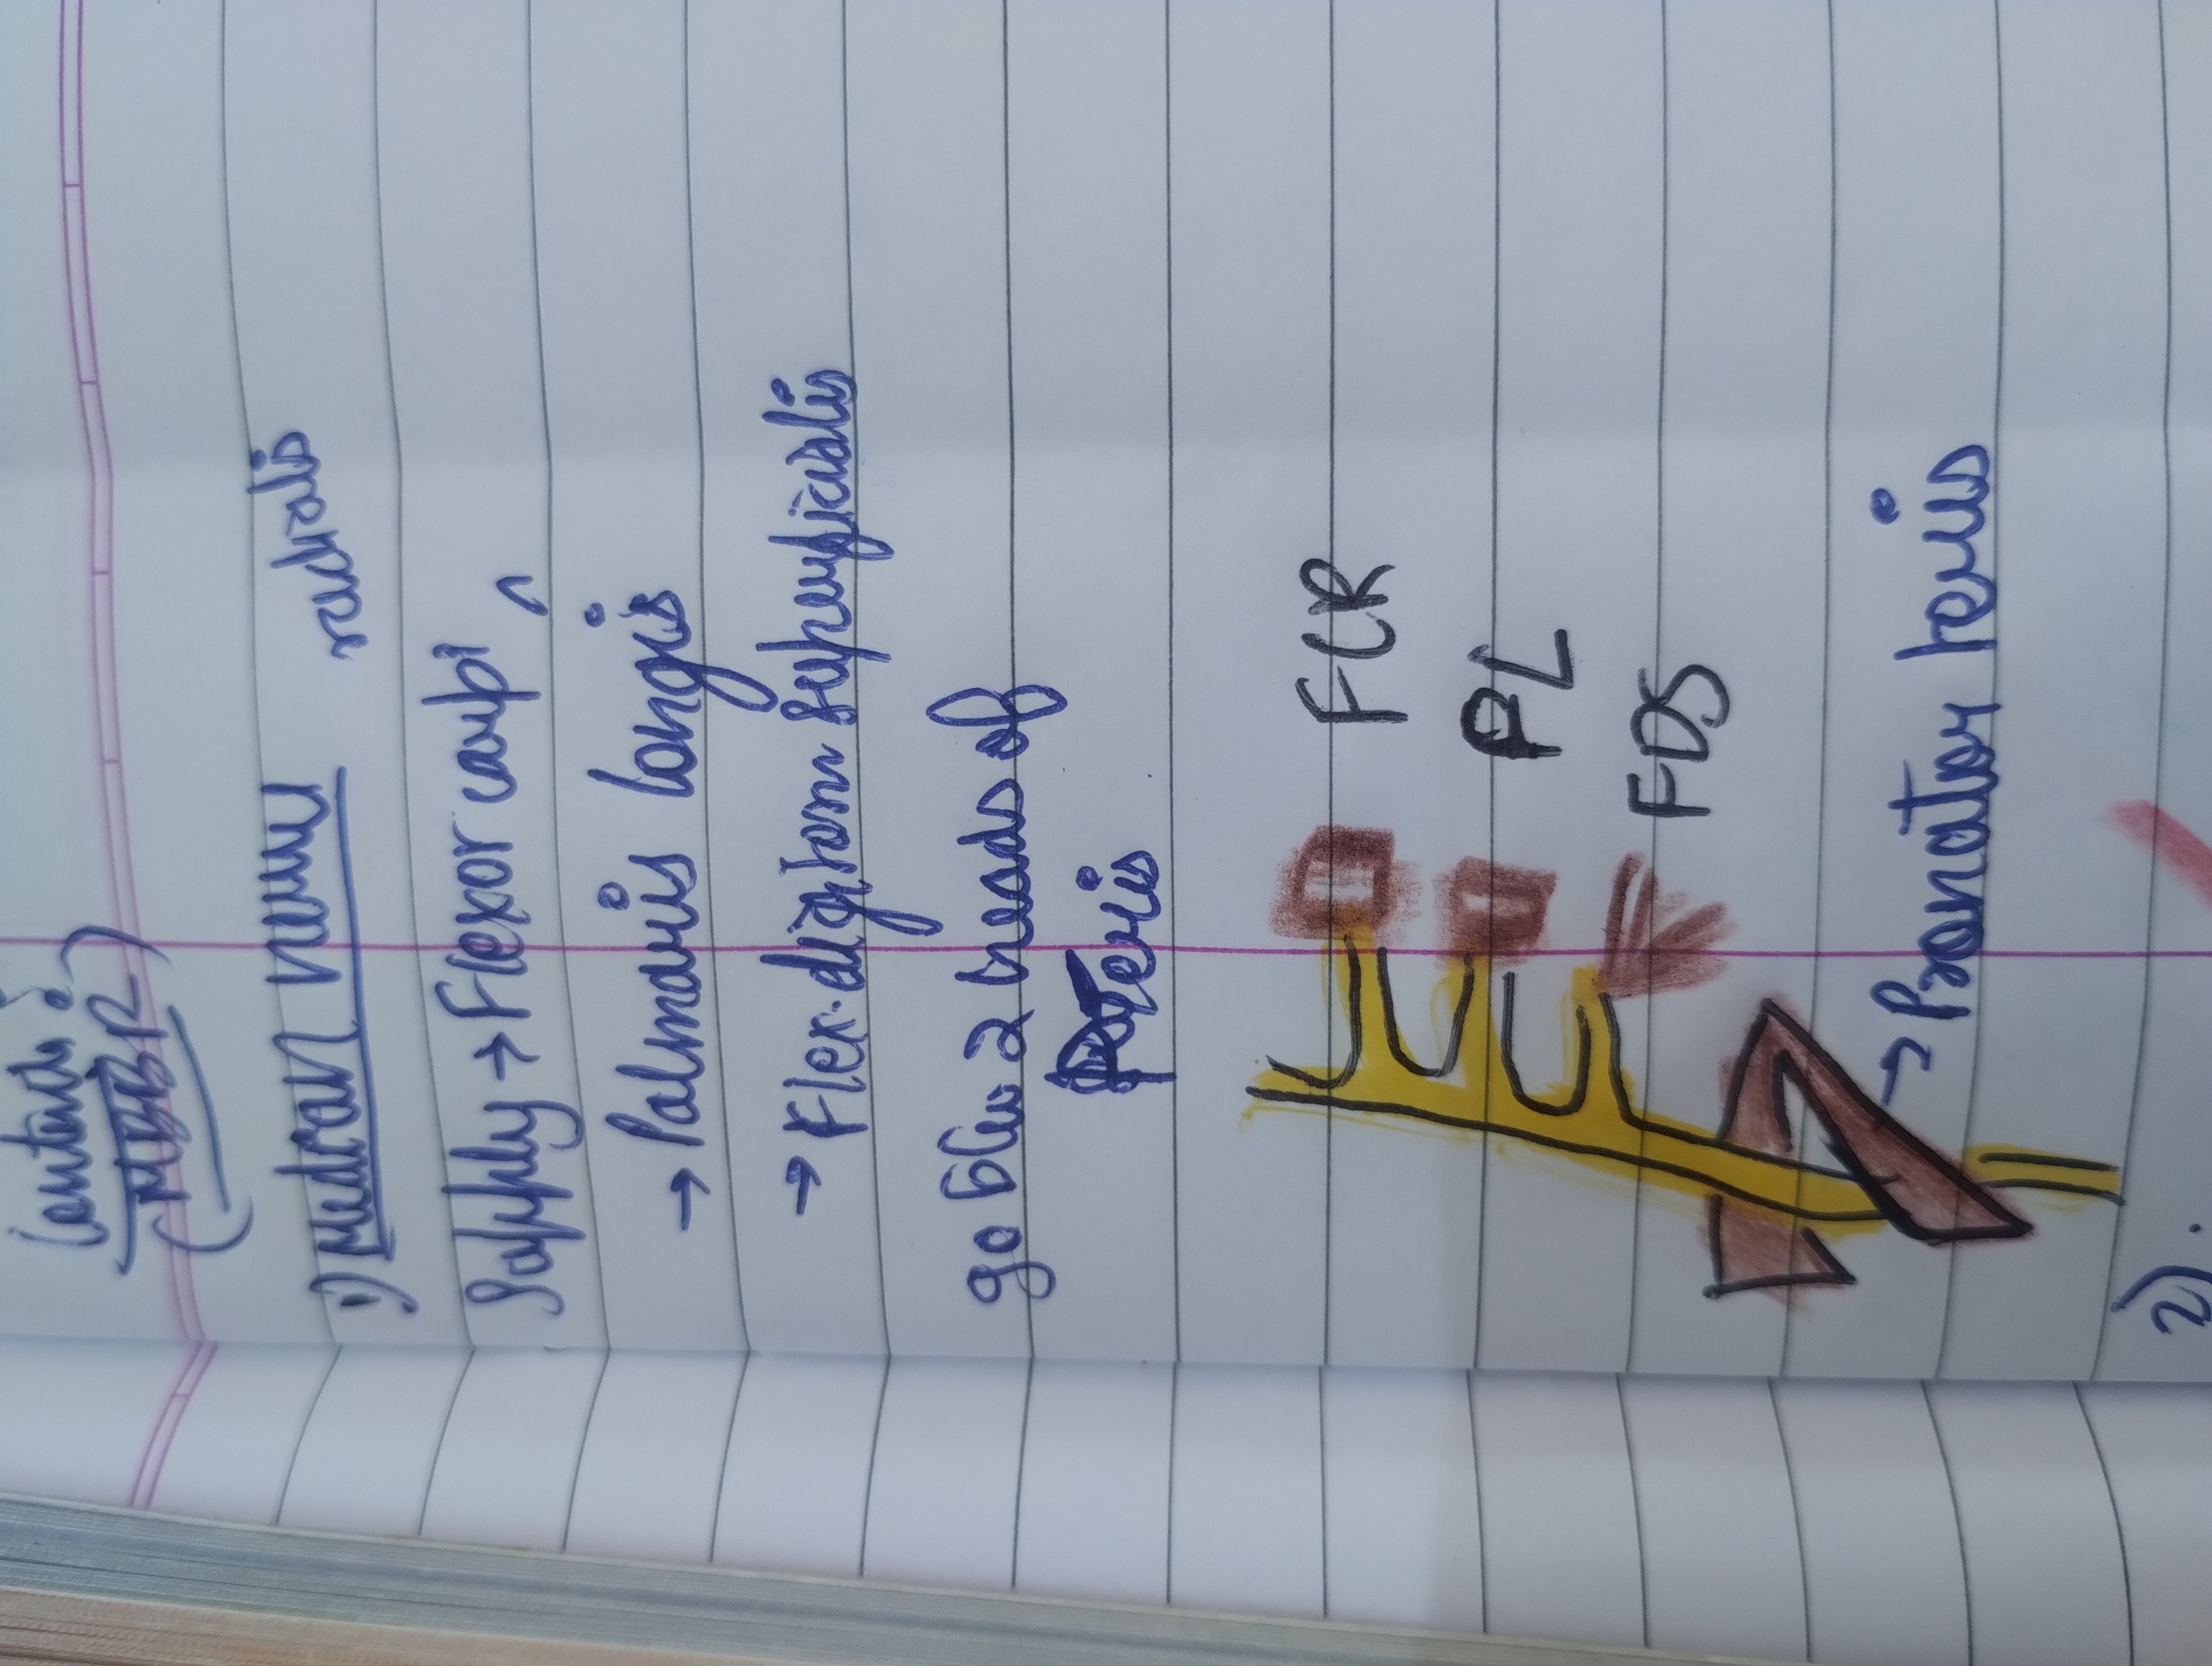 Contents :
(MBBR)
1) Median nerve
radialis
Supply → Flexor carpi ^
→ Palmaris longis
→ Flex. digitorm superficialis
go b/w 2 heads of
P Teris
FCR
PL
FDS
→ Pronator teris
2).